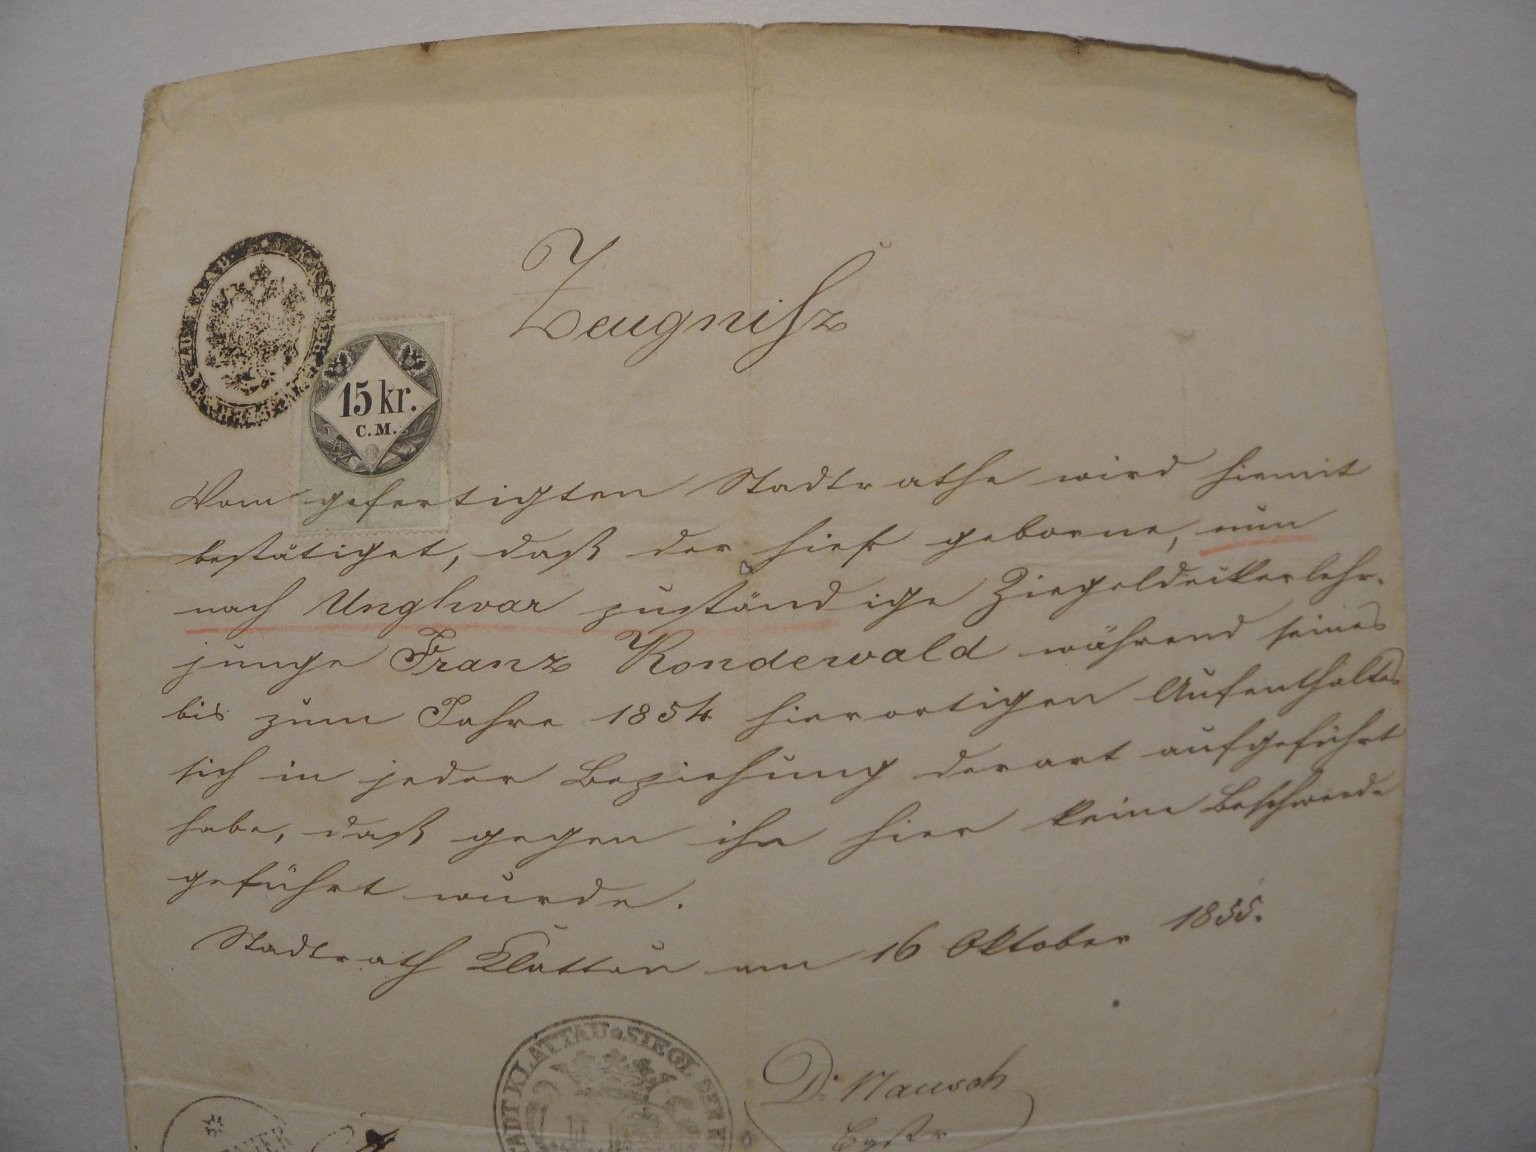 Zeugniß
15 kr.
C.M.
Vom gefertigten Stadtrathe wird hiemit
bestätiget, daß der hier geborne, nun
nach Unghvar zuständige Ziegeldeckerlehr-
junge Franz Ronderwald während seines
bis zum Jahre 1854 hierortigen Aufenthaltes
sich in jeder Beziehung derart aufgeführt
habe, daß gegen ihn hier keine Beschwerde
geführt wurde.
Stadtrath Klattau am 16 Oktober 1855.
STADT KLATTAU SIEGL DER K
Dr. Mausch